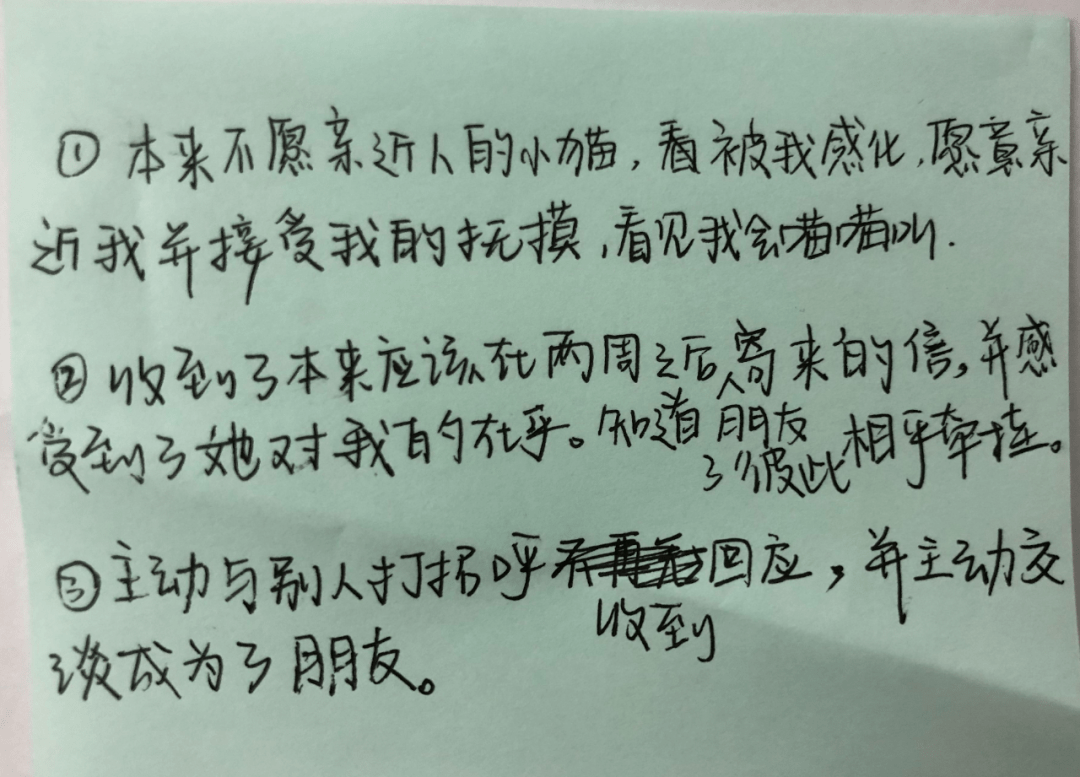 ① 本来不愿亲近人的小猫，看被我感化，愿意亲
近我并接受我的抚摸，看见我会喵喵叫.
② 收到了本来应该在两周之后人寄来的信。并感
受到了她对我的在乎。知道了朋友彼此相乎牵挂。
③ 主动与别人打招呼收到回应，并主动交
谈成为了朋友。